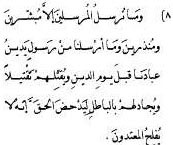 ٨) وما نرسل المرسلين إلا مبشرين
ومنذرين وما أرسلنا من رسول يدين
عبادنا قبل يوم الدين ويقتلهم تقتيلاً
ويجادلهم بالباطل ليدحض الحق إنه لا
يفلح المعتدون.